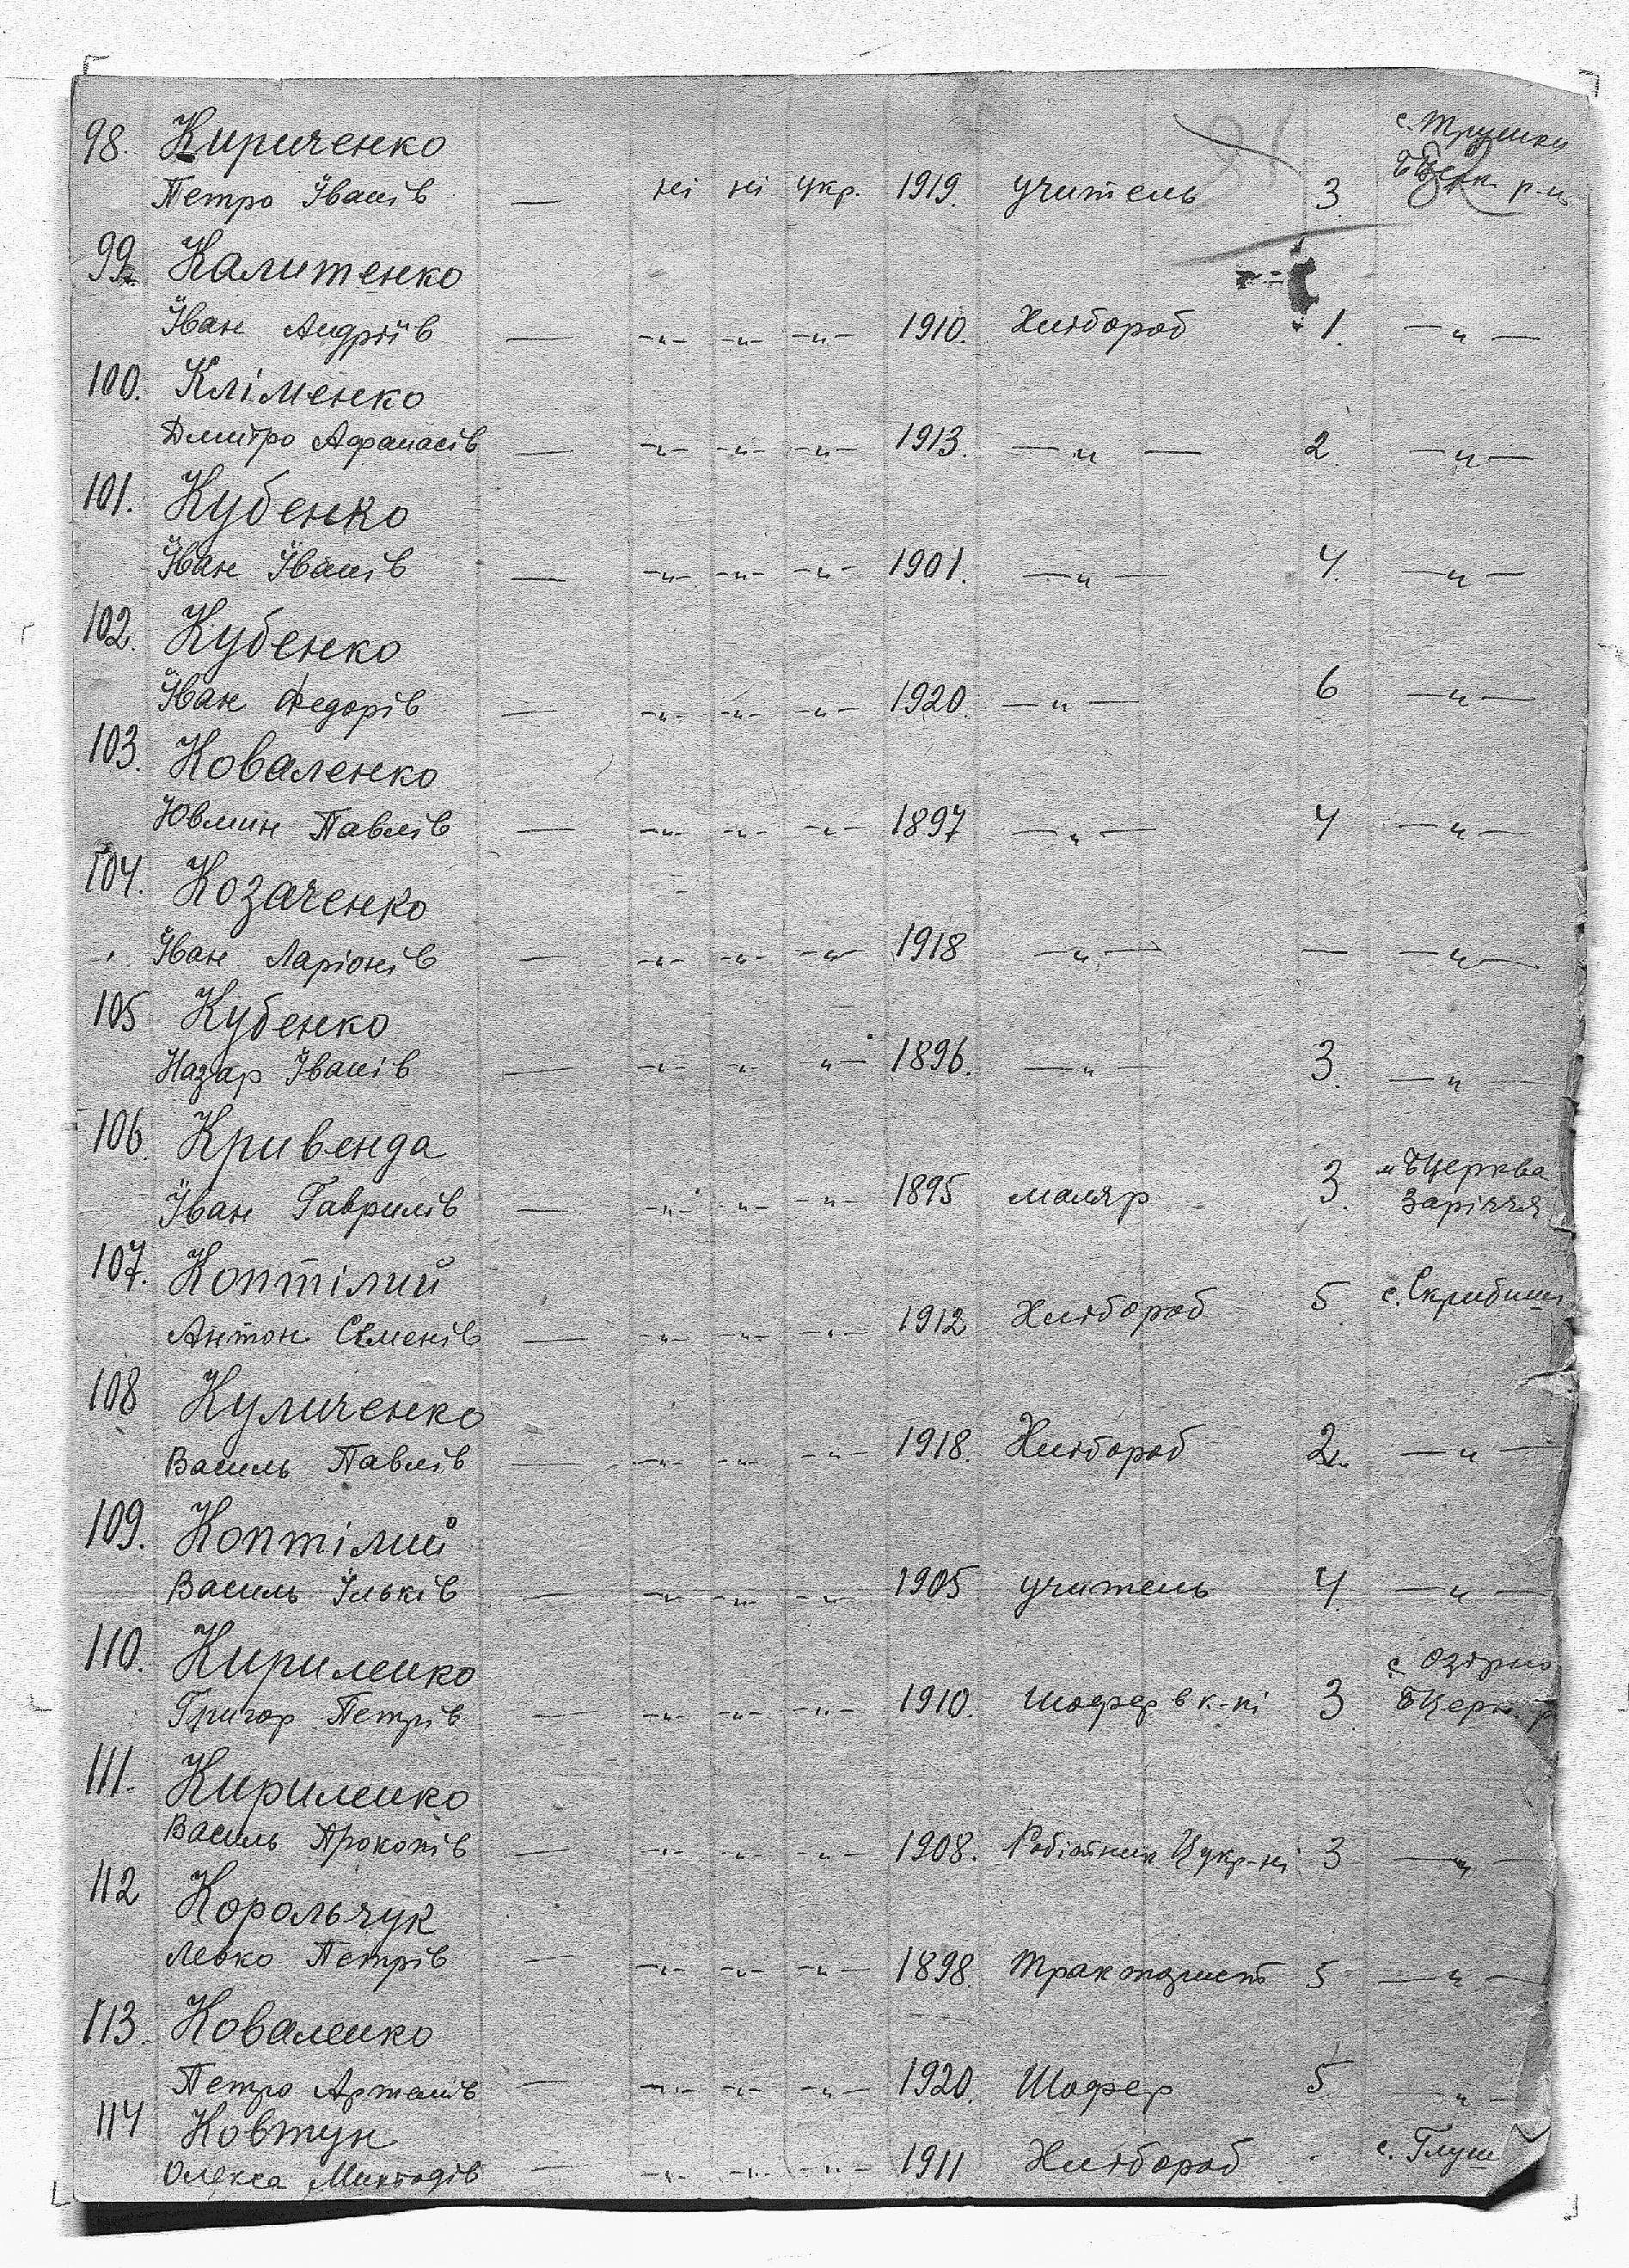 98. Кириченко с. Трушки
Петро Іванів — ні ні укр. 1919. учитель 3. БЦерк. р-н
99. Калитенко
Іван Андріїв — -"- -"- -"- 1910. Хлібороб 1. — " —
100. Кліменко
Дмитро Афанасів — -"- -"- -"- 1913. — " — 2. — " —
101. Кубенко
Іван Іванів — -"- -"- -"- 1901. — " — 4. — " —
102. Кубенко
Іван Федорів — -"- -"- -"- 1920. — " — 6 — " —
103. Коваленко
Павлів — -"- -"- -"- 1897 — " — 4 — " —
104. Козаченко
Іван Ларіонів — -"- -"- -"- 1918 — " — — — " —
105 Кубенко
Назар Іванів — -"- " " — 1896. — " — 3. — " —
106. Кривенда м БЦерква
Іван Гаврилів — -"- " -"- 1895 маляр 3. Заріччя
107. Коптілий с. Скрибиш
Антон Семенів — -"- -"- -"- 1912 Хлібороб 5.
108 Куличенко
Василь Павлів — -"- -"- -"- 1918. Хлібороб 2. — " —
109. Коптілий
Василь Ільків — -"- -"- -"- 1905 учитель 4. — " —
110. Кириленко с. Озірно
Григор Петрів — -"- -"- -"- 1910. шофер в к-пі 3. БЦерк. р
111. Кириленко
Василь Прокопів — -"- -"- -"- 1908. Робітник Цукр-ні 3 — " —
112 Корольчук
Левко Петрів — -"- -"- -"- 1898. Тракторист 5 — " —
113. Коваленко
Петро Артемів — -"- -"- -"- 1920. Шофер 5 — " —
114 Ковтун
Олекса — -"- -"- -"- 1911 Хлібороб - с. Глуш